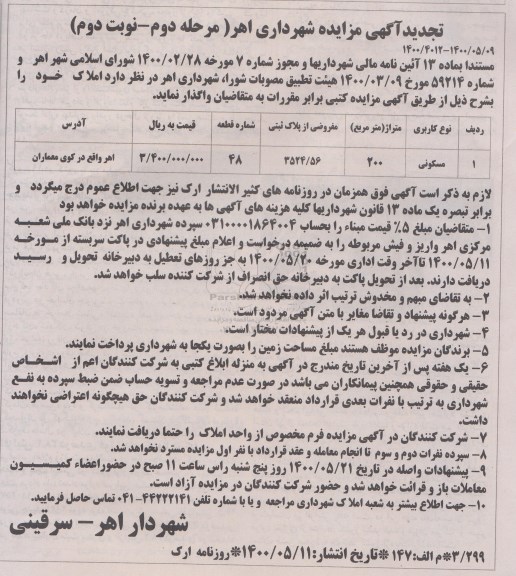 تجدیدآگهی مزایده شهرداری اهر( مرحله دوم-نوبت دوم)
۱۴۰۰/۴۰۱۲-۱۴۰۰/۰۵/۰۹
مستندا بماده ۱۳ آئین نامه مالی شهرداریها و مجوز شماره ۷ مورخه ۱۴۰۰/۰۲/۲۸ شورای اسلامی شهر اهر و
شماره ۵۹۲۱۴ مورخ ۱۴۰۰/۰۳/۰۹ هیئت تطبیق مصوبات شورا، شهرداری اهر در نظر دارد املاک خود را
بشرح ذیل از طریق آگهی مزایده کتبی برابر مقررات به متقاضیان واگذار نماید.
ردیف نوع کاربری متراژ(متر مربع) مفروضی از پلاک ثبتی شماره قطعه قیمت به ریال آدرس
۱ مسکونی ۲۰۰ ۳۵۲۴/۵۶ ۴۸ ۳/۴۰۰/۰۰۰/۰۰۰ اهر واقع در کوی معماران
لازم به ذکر است آگهی فوق همزمان در روزنامه های کثیر الانتشار ارک نیز جهت اطلاع عموم درج میگردد و
برابر تبصره یک ماده ۱۳ قانون شهرداریها کلیه هزینه های آگهی ها به عهده برنده مزایده خواهد بود
۱- متقاضیان مبلغ ۵٪ قیمت مبناء را بحساب ۰۳۱۰۰۰۰۱۸۶۴۰۰۴ سپرده شهرداری اهر نزد بانک ملی شعبه
مرکزی اهر واریز و فیش مربوطه را به ضمیمه درخواست و اعلام مبلغ پیشنهادی در پاکت سربسته از مورخه
۱۴۰۰/۰۵/۱۱ تاآخر وقت اداری مورخه ۱۴۰۰/۰۵/۲۰ به جز روزهای تعطیل به دبیرخانه تحویل و رسید
دریافت دارند. بعد از تحویل پاکت به دبیرخانه حق انصراف از شرکت کننده سلب خواهد شد.
۲- به تقاضای مبهم و مخدوش ترتیب اثر داده نخواهد شد.
۳- هرگونه پیشنهاد و تقاضا مغایر با متن آگهی مردود است.
۴- شهرداری در رد یا قبول هر یک از پیشنهادات مختار است.
۵- برندگان مزایده موظف هستند مبلغ مساحت زمین را بصورت یکجا به شهرداری پرداخت نمایند.
۶- یک هفته پس از آخرین تاریخ مندرج در آگهی به منزله ابلاغ کتبی به شرکت کنندگان اعم از اشخاص
حقیقی و حقوقی همچنین پیمانکاران می باشد در صورت عدم مراجعه و تسویه حساب ضمن ضبط سپرده به نفع
شهرداری به ترتیب با نفرات بعدی قرارداد منعقد خواهد شد و شرکت کنندگان حق هیچگونه اعتراضی نخواهند
داشت.
۷- شرکت کنندگان در آگهی مزایده فرم مخصوص از واحد املاک را حتما دریافت نمایند.
۸- سپرده نفرات دوم و سوم تا انجام معامله و عقد قرارداد با نفر اول مزایده مسترد نخواهد شد.
۹- پیشنهادات واصله در تاریخ ۱۴۰۰/۰۵/۲۱ روز پنج شنبه راس ساعت ۱۱ صبح در حضوراعضاء کمیسیون
معاملات باز و قرائت خواهد شد و حضور شرکت کنندگان در مزایده آزاد است.
۱۰- جهت اطلاع بیشتر به شعبه املاک شهرداری مراجعه و یا با شماره تلفن ۴۴۲۲۲۱۴۱-۰۴۱ تماس حاصل فرمایید.
شهردار اهر- سرقینی
۳/۲۹۹*م الف:۱۴۷ *تاریخ انتشار:۱۴۰۰/۰۵/۱۱*روزنامه ارک